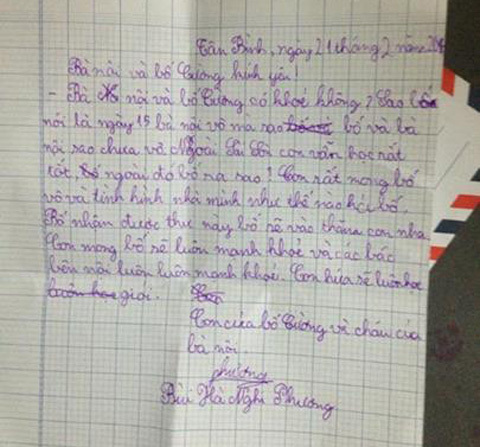 Tân Bình, ngày 21 tháng 2 năm 20
Bà nội và bố Cương kính yêu!
- Bà nội và bố Cương có khoẻ không? Sao bố
nói là ngày 15 bà nội vô mà sao bố và bà
nội sao chưa vô Ngoài Sài Gòn con vẫn học rất
tốt, ngoài đó bố ra sao! Con rất mong bố
vô và tình hình nhà mình như thế nào hỏi bố.
Bố nhận được thư này bố sẽ vào thăm con nha
Con mong bố sẽ luôn mạnh khoẻ và các bác
bên nội luôn luôn mạnh khoẻ. Con hứa sẽ luôn học
giỏi.
Con của bố Cương và cháu của
bà nội
phương
Bùi Hà Nghi Phương